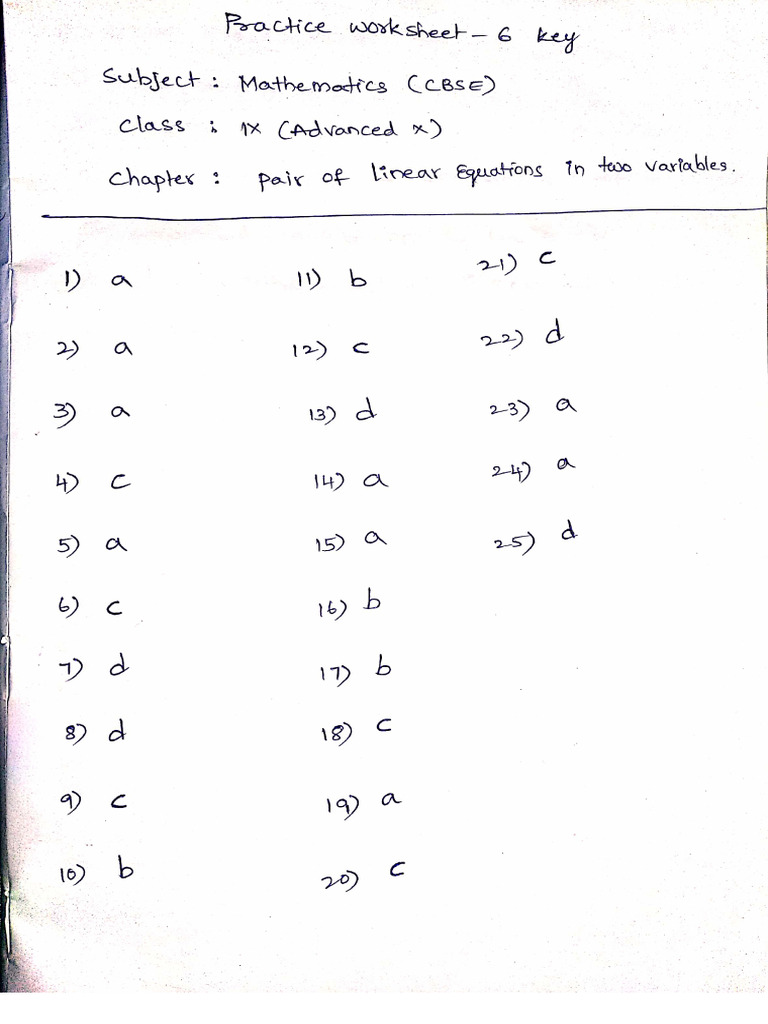 Practice worksheet - 6 key
Subject : Mathematics (CBSE)
Class : IX (Advanced X)
Chapter : pair of linear Equations in two variables.
1) a
2) a
3) a
4) c
5) a
6) c
7) d
8) d
9) c
10) b
11) b
12) c
13) d
14) a
15) a
16) b
17) b
18) c
19) a
20) c
21) c
22) d
23) a
24) a
25) d